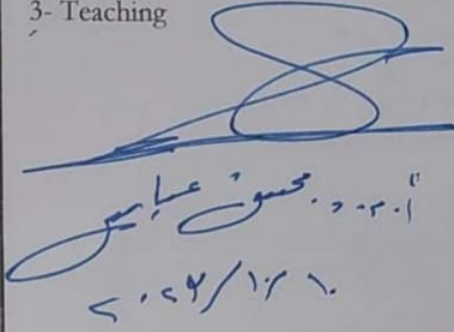 3- Teaching
أ.م.د. محسن عباس
٢٠٢٣/١٠/١٠